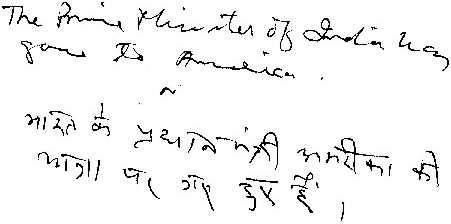 The Prime Minister of India has
gone to America.
भारत के प्रधान मंत्री अमरीका की
यात्रा पर गए हुए हैं।